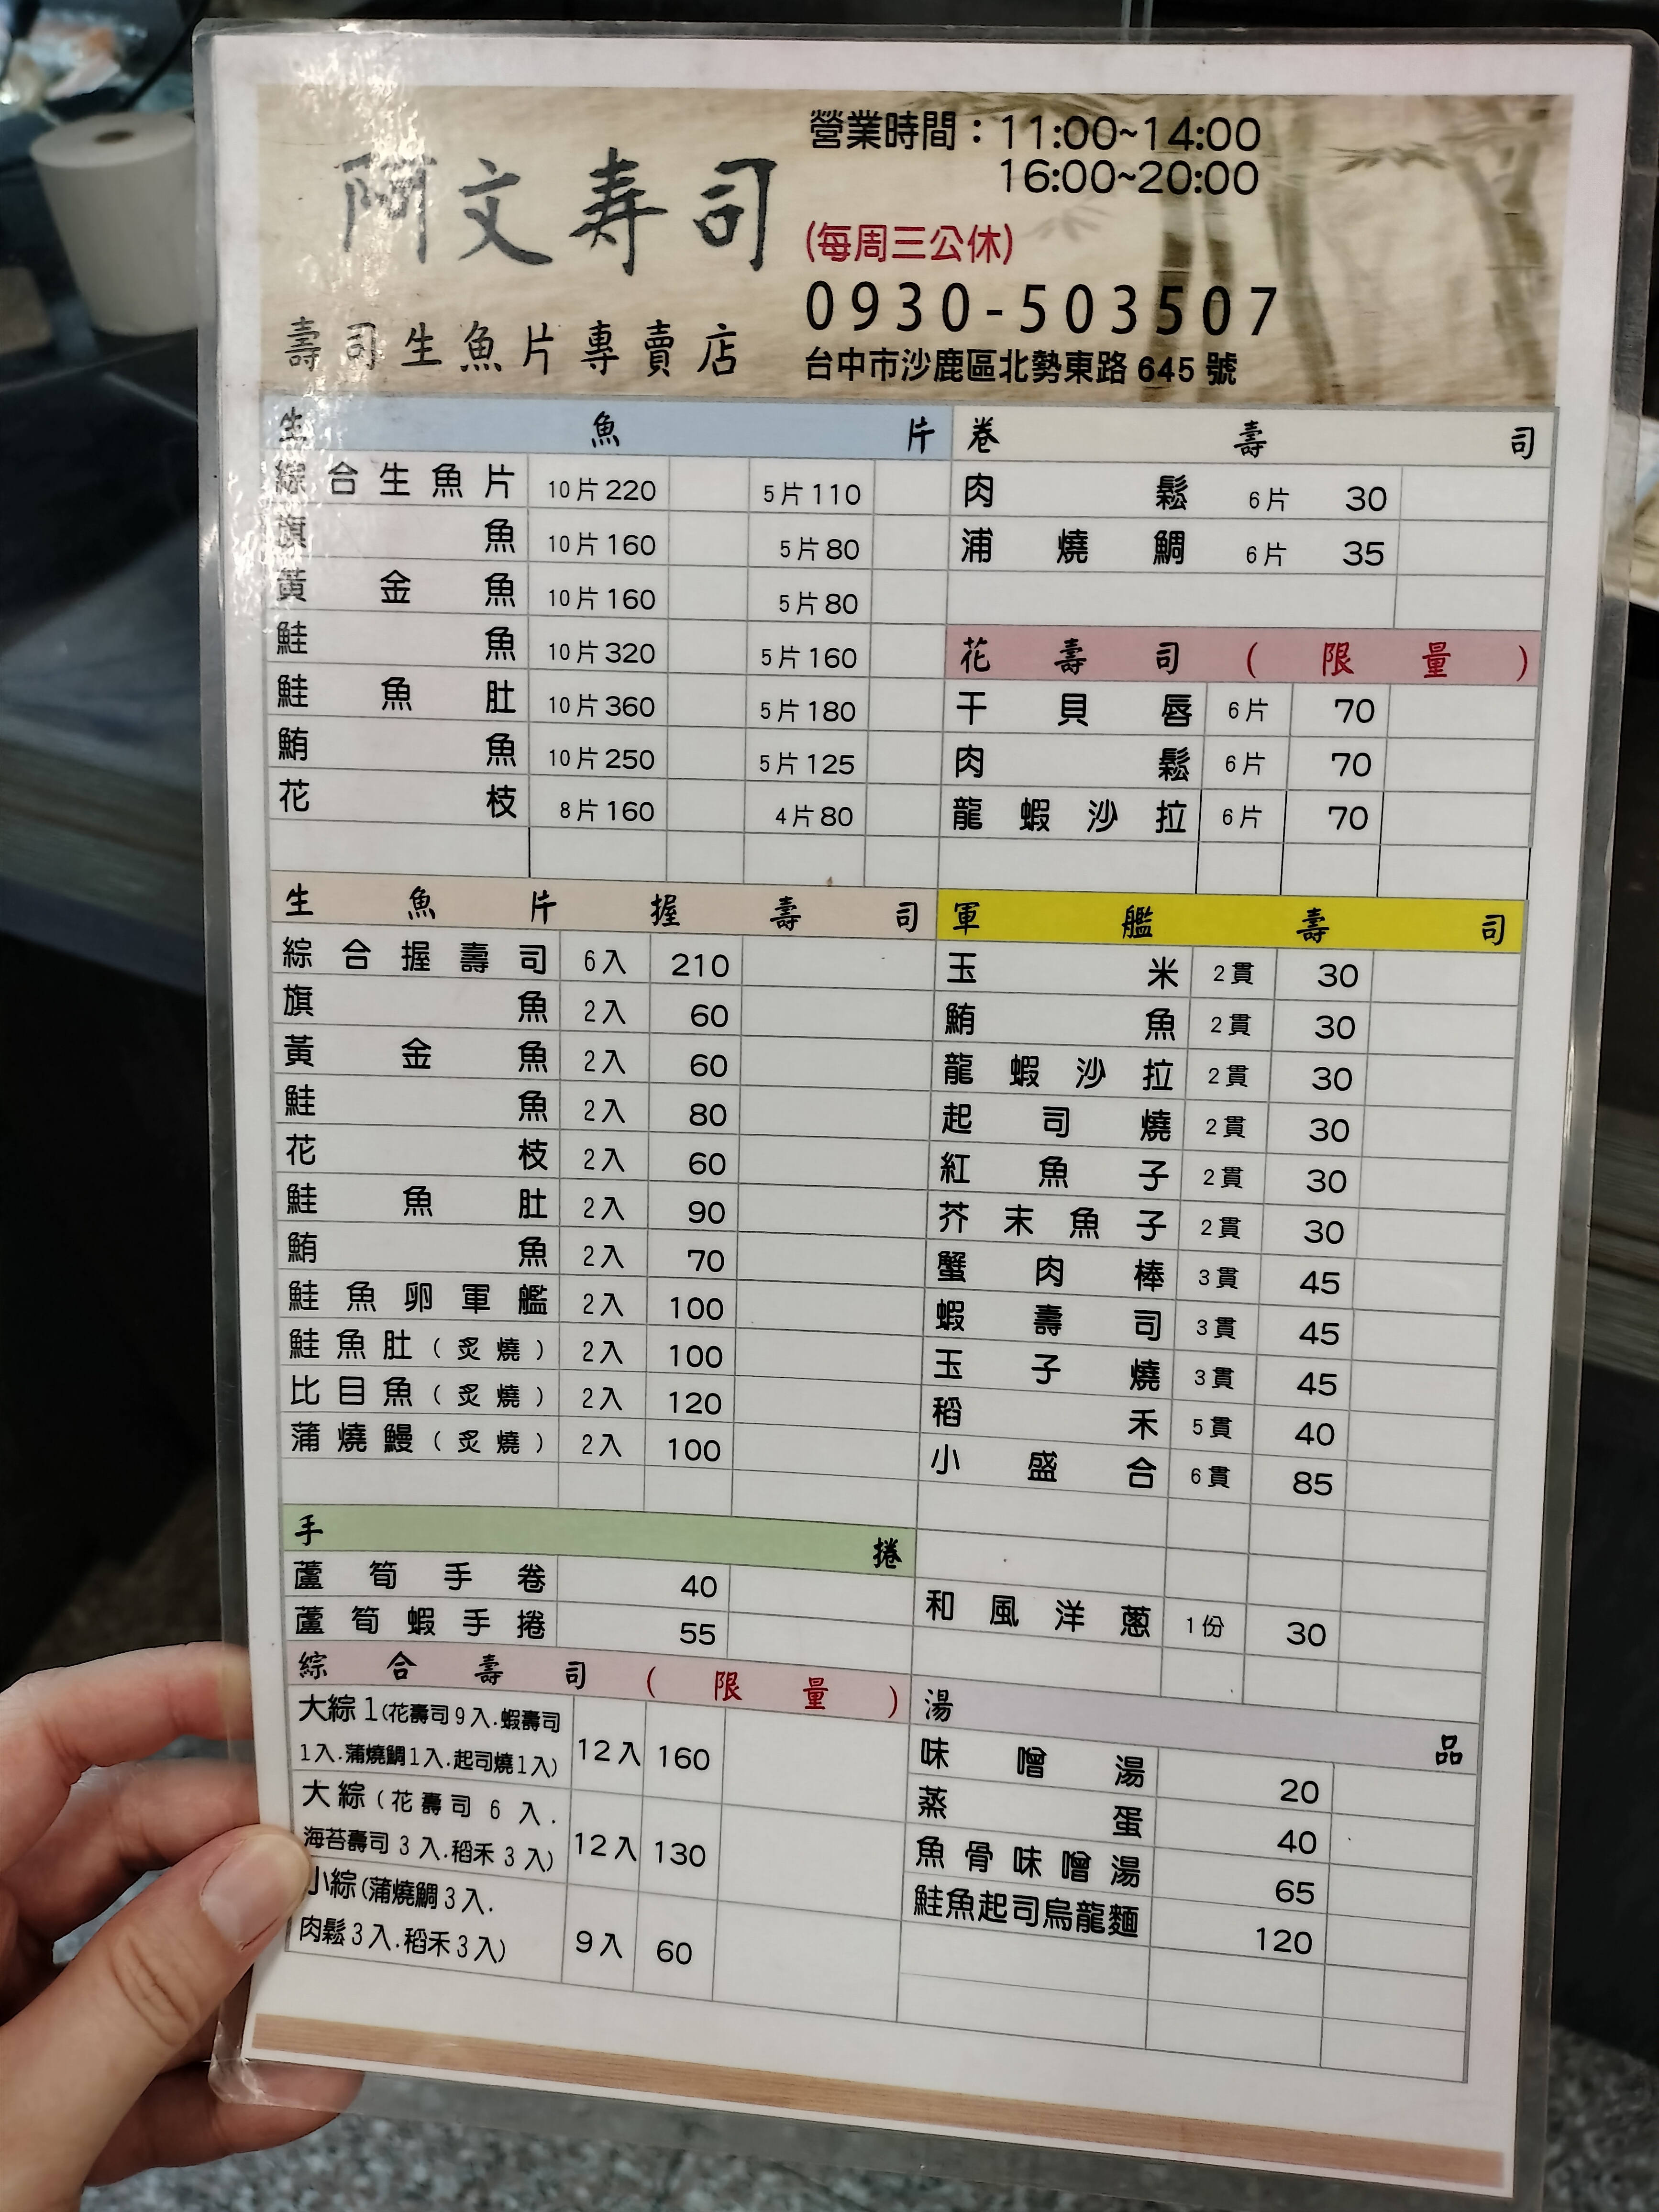 阿文寿司
壽司生魚片專賣店
營業時間：11:00~14:00
16:00~20:00
(每周三公休)
0930-503507
台中市沙鹿區北勢東路 645 號
生魚片
綜合生魚片 10片220 5片110
旗魚 10片160 5片80
黃金魚 10片160 5片80
鮭魚 10片320 5片160
鮭魚肚 10片360 5片180
鮪魚 10片250 5片125
花枝 8片160 4片80
卷壽司
肉鬆 6片 30
浦燒鯛 6片 35
花壽司(限量)
干貝唇 6片 70
肉鬆 6片 70
龍蝦沙拉 6片 70
生魚片握壽司
綜合握壽司 6入 210
旗魚 2入 60
黃金魚 2入 60
鮭魚 2入 80
花枝 2入 60
鮭魚肚 2入 90
鮪魚 2入 70
鮭魚卵軍艦 2入 100
鮭魚肚(炙燒) 2入 100
比目魚(炙燒) 2入 120
蒲燒鰻(炙燒) 2入 100
軍艦壽司
玉米 2貫 30
鮪魚 2貫 30
龍蝦沙拉 2貫 30
起司燒 2貫 30
紅魚子 2貫 30
芥末魚子 2貫 30
蟹肉棒 3貫 45
蝦壽司 3貫 45
玉子燒 3貫 45
稻禾 5貫 40
小盛合 6貫 85
和風洋蔥 1份 30
手捲
蘆筍手卷 40
蘆筍蝦手捲 55
綜合壽司(限量)
大綜1(花壽司9入.蝦壽司
1入.蒲燒鯛1入.起司燒1入) 12入 160
大綜(花壽司 6 入.
海苔壽司 3 入.稻禾 3 入) 12入 130
小綜(蒲燒鯛 3 入.
肉鬆 3 入.稻禾 3 入) 9入 60
湯品
味噌湯 20
蒸蛋 40
魚骨味噌湯 65
鮭魚起司烏龍麵 120